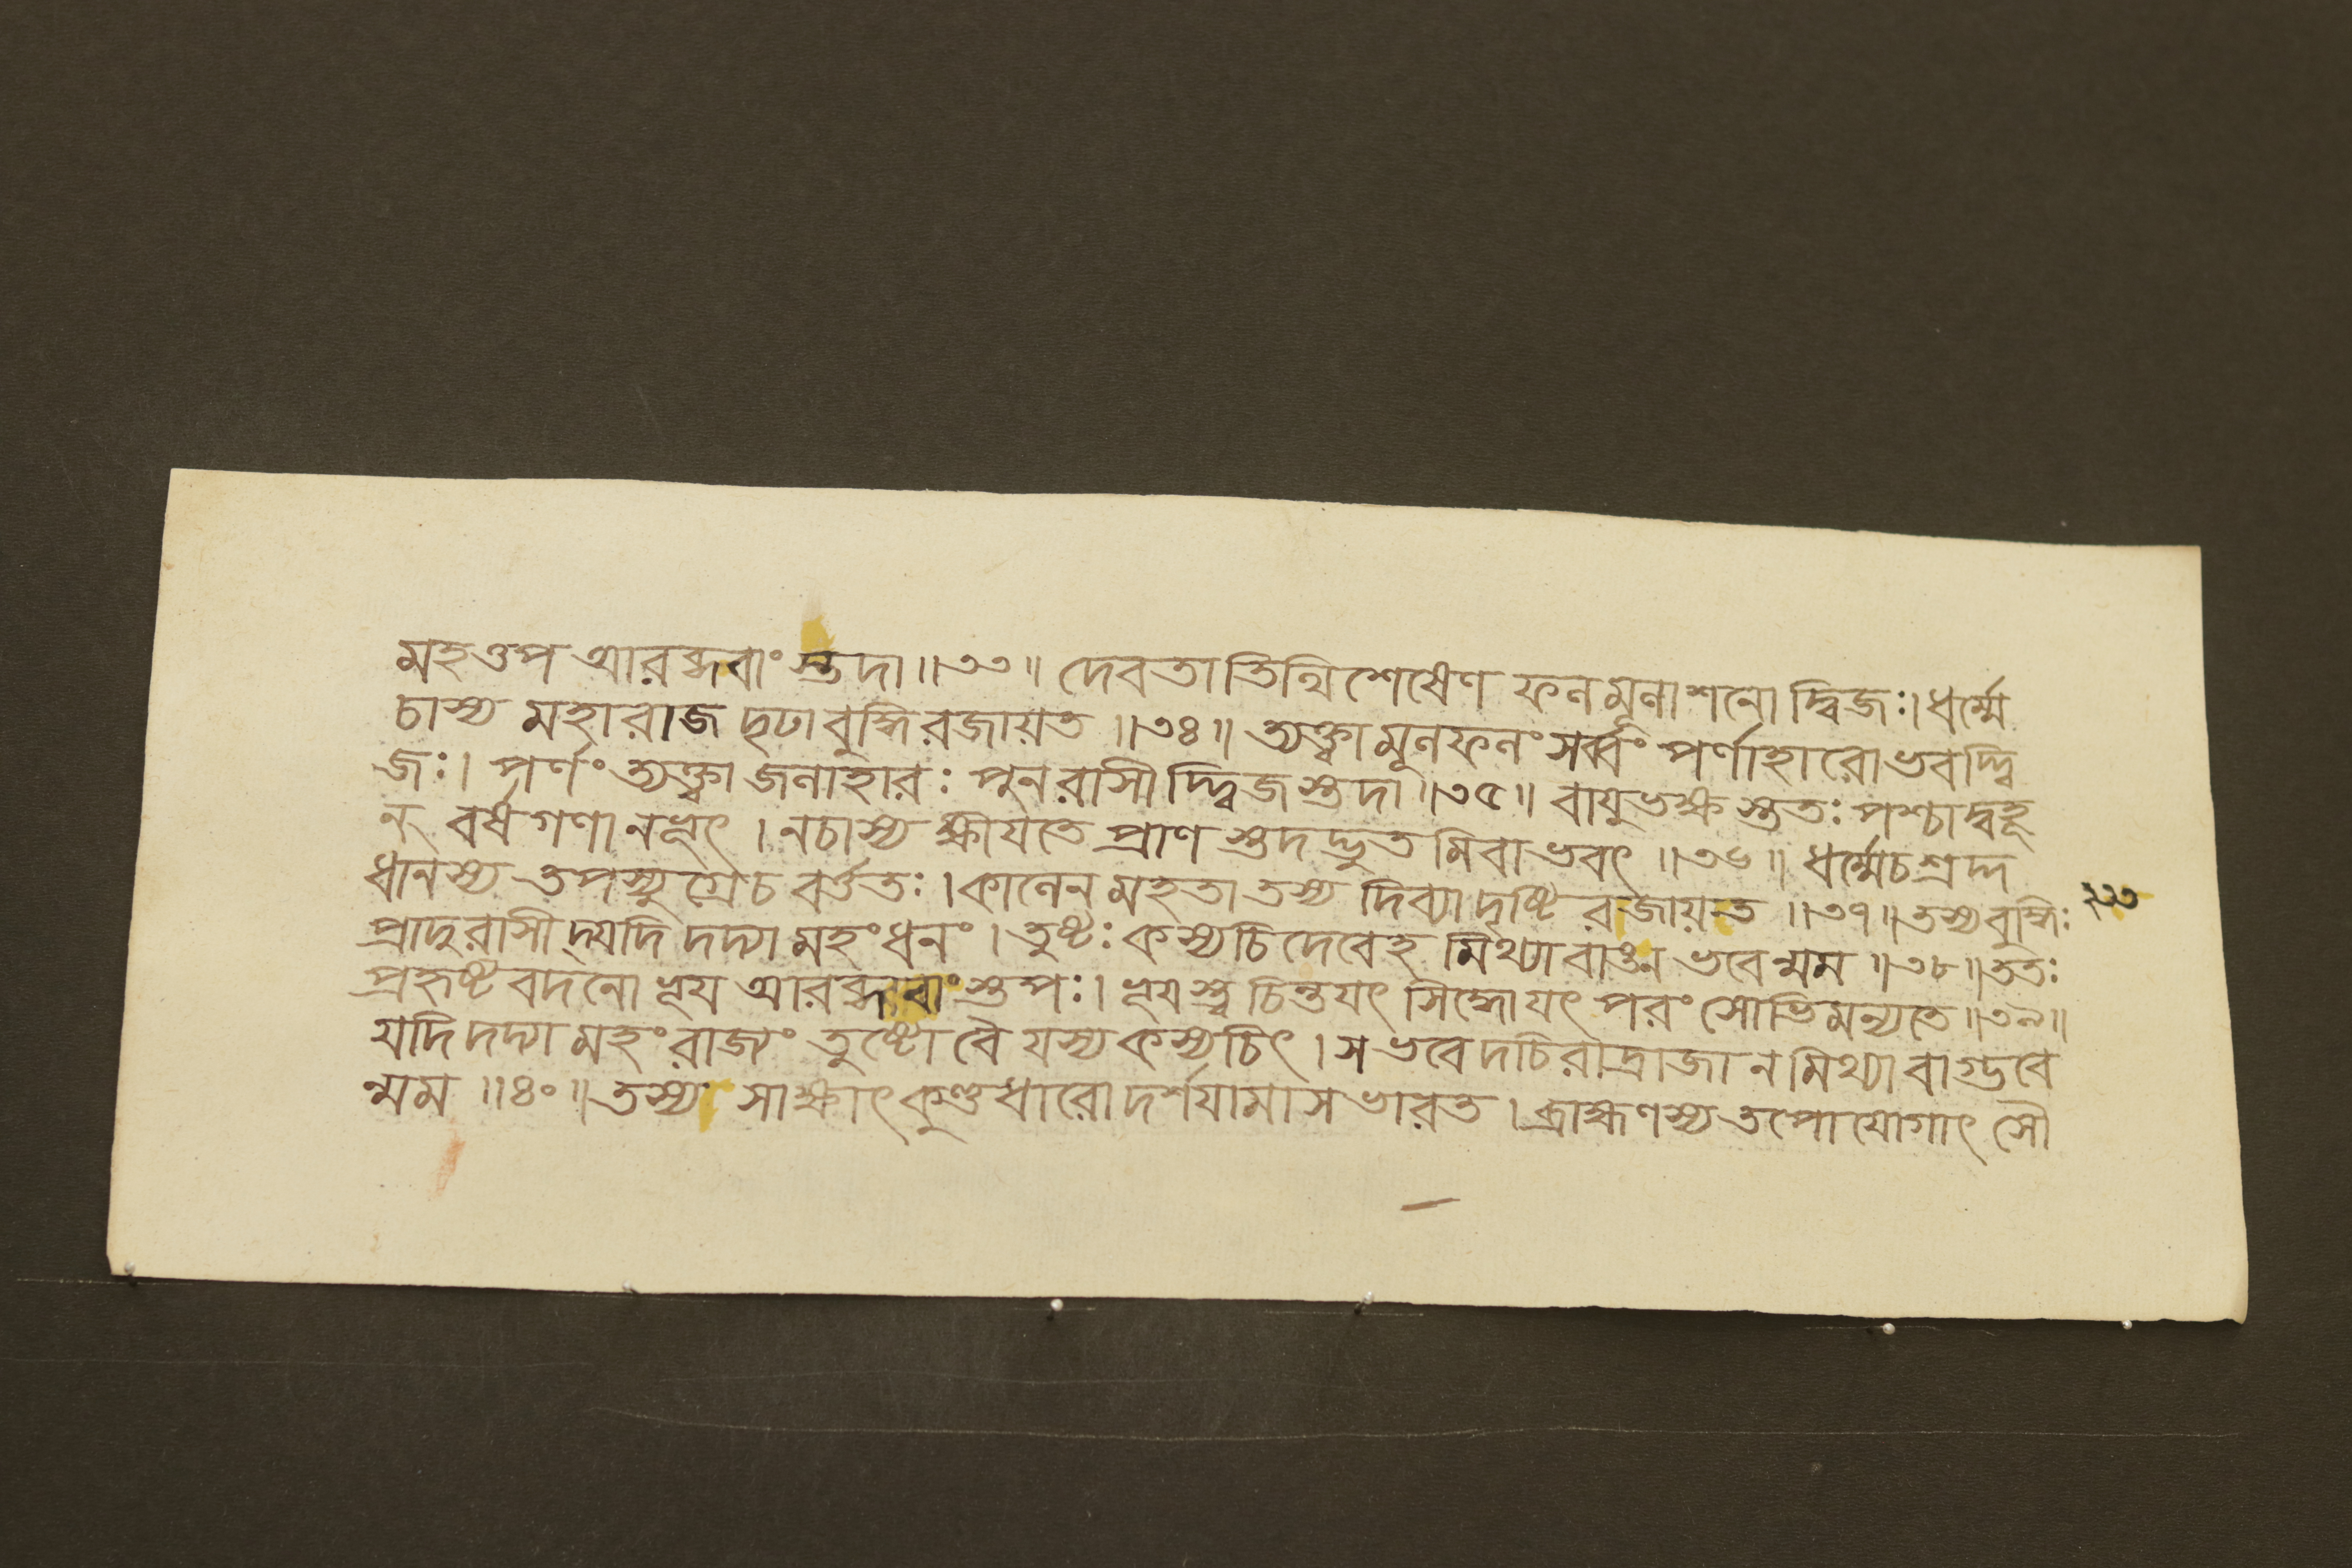 মহত্তপ আরব্ধবাংস্তদা ॥ ৩৩ ॥ দেবতাতিথিশেষেণ ফলমূলাশনো দ্বিজঃ। ধর্ম্মে
চাস্য মহারাজ দৃঢাবুদ্ধিরজায়ত ॥ ৩৪ ॥ ত্যক্ত্বামূলফলং সর্ব্বং পর্ণাহারোভবদ্দ্বি
জঃ। পর্ণং ত্যক্ত্বা জলাহারঃ পুনরাসীদ্দ্বিজস্তদা ॥ ৩৫ ॥ বায়ুভক্ষস্ততঃ পশ্চাদ্বহূ
ন্ বর্ষগণানভূৎ । নচাস্য ক্ষীয়তে প্রাণস্তদদ্ভুতমিবাভবৎ ॥ ৩৬ ॥ ধর্ম্মেচশ্রদ্দ
ধানস্য তপস্যুগ্রেচ বর্ত্ততঃ । কালেন মহতা তস্য দিব্যাদৃষ্টিরজায়ত ॥ ৩৭ ॥ তস্যবুদ্ধিঃ
২১৩
প্রাদুরাসীদ্যদি দদ্যামহংধনং । তুষ্টঃ কস্যচিদেবেহ মিথ্যাবাঙ্ন ভবেন্মম ॥ ৩৮ ॥ ততঃ
প্রহৃষ্টবদনো ভূয় আরব্ধবাংস্তপঃ। ভূয়শ্চচিন্তয়ৎ সিদ্ধোযৎ পরং সোভিমন্যতে ॥ ৩৯ ॥
যদি দদ্যামহং রাজ্যং তুষ্টো বৈ যস্যকস্যচিৎ । স ভবেদচিরাদ্রাজা ন মিথ্যাবাগ্ভবে
ন্মম ॥ ৪০ ॥ তস্য সাক্ষাৎকুণ্ডধারোদর্শয়ামাস ভারত । ব্রাহ্মণস্য তপোযোগাৎ সৌ